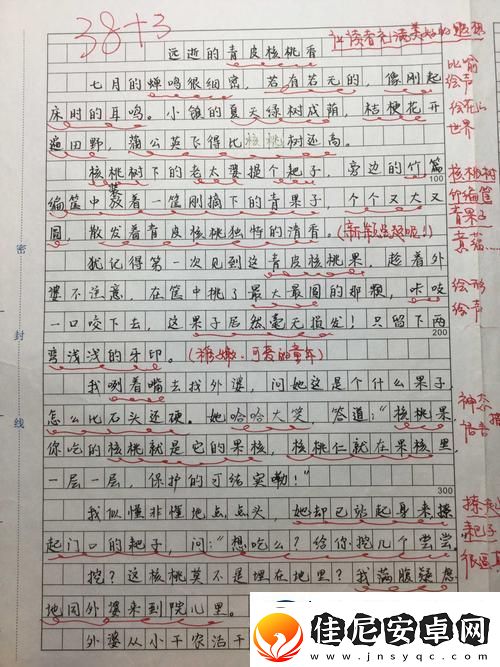 38+3
让读者充满美好的联想
远逝的青皮核桃香
七月的蝉鸣很细密，若有若无的，像刚起
床时的耳鸣。小镇的夏天绿树成荫，桔梗花开
遍田野，蒲公英飞得比核桃树还高。
比喻
绘声
绘色
世界
核桃树下的老太婆摆个耙子，旁边的竹篇
编筐中装着一筐刚摘下的青果子，个个又大又
圆，散发着青皮核桃独特的清香。
核桃树
竹编筐
青果子
100
犹记得第一次见到这青皮核桃果，趁着外
婆不注意，在筐中挑了最大最圆的那颗，咔吱
一口咬下去，这果子居然毫无损发！只留下两
弯浅浅的牙印。（稚嫩、可爱的童年）
绘形
绘声
200
我咧着嘴去找外婆，问她这是个什么果子，
怎么比石头还硬。她哈哈大笑 答道：“核桃果，
你吃的核桃就是它的果核，核桃仁就在果核里，
一层一层，保护的可结实嘞！”
神态
300
我似懂非懂地点点头，她却已站起身来操
起门口的耙子，问：“想吃么？给你挖几个尝尝
挖？这核桃莫不是埋在地里？我满腹疑惑
地同外婆来到院儿里。
外婆从小干农活干
耙子
密
封
线
佳尼安卓网
www.jnsyqc.com